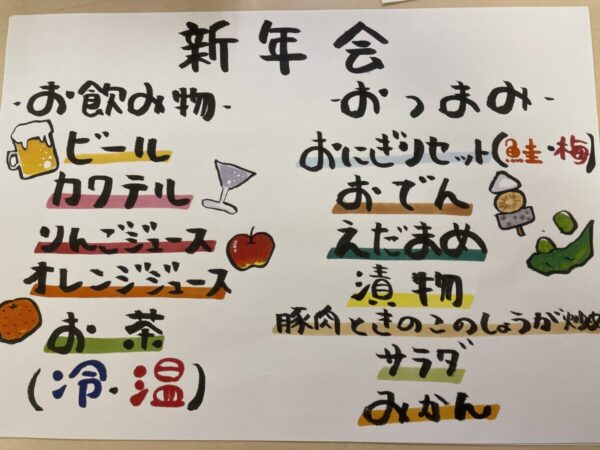 新年会
-お飲み物-
ビール
カクテル
りんごジュース
オレンジジュース
お茶
(冷・温)
-おつまみ-
おにぎりセット(鮭・梅)
おでん
えだまめ
漬物
豚肉ときのこのしょうが炒め
サラダ
みかん